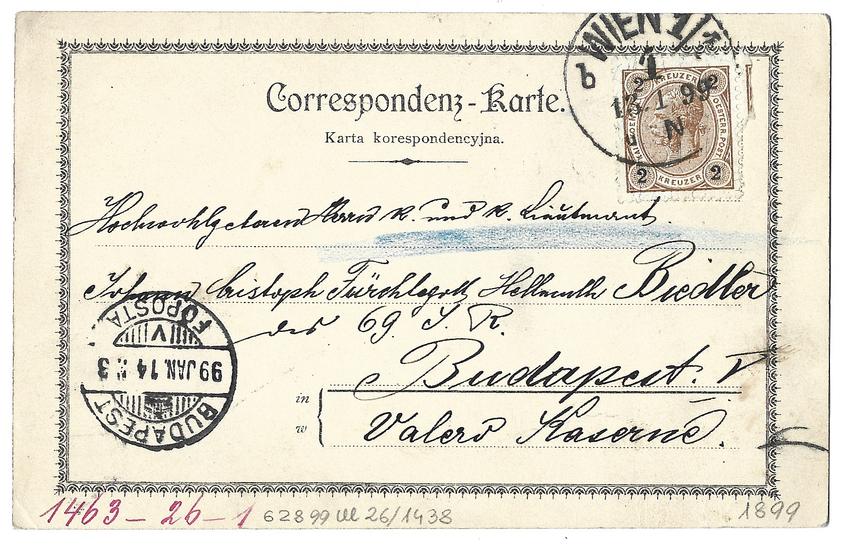 WIEN 1/1
b
1
13.1.99
N
2 KREUZER 2
KAIS. KOEN. OESTERR. POST
2 KREUZER 2
Correspondenz-Karte.
Karta korespondencyjna.
Hochwohlgeboren Herrn k. und k. Lieutenant
Johann Cristoph Fürchtegott Hellmuth Biedler
des 69. I. R.
Budapest. V
in
w
Valero Kaserne.
BUDAPEST
99 JAN. 14
FŐPOSTA
V
1463-26-1
62899 26/1438
1899